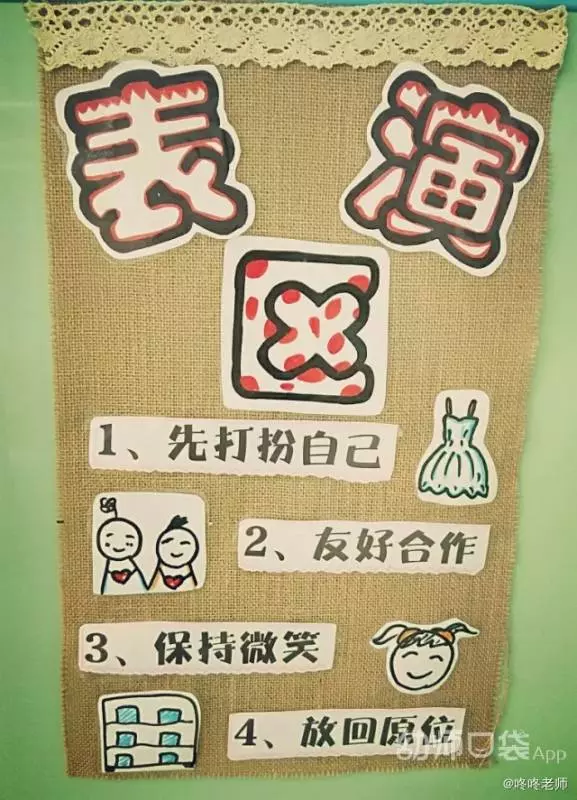 表演
区
1、先打扮自己
2、友好合作
3、保持微笑
4、放回原位
幼师口袋App
@咚咚老师